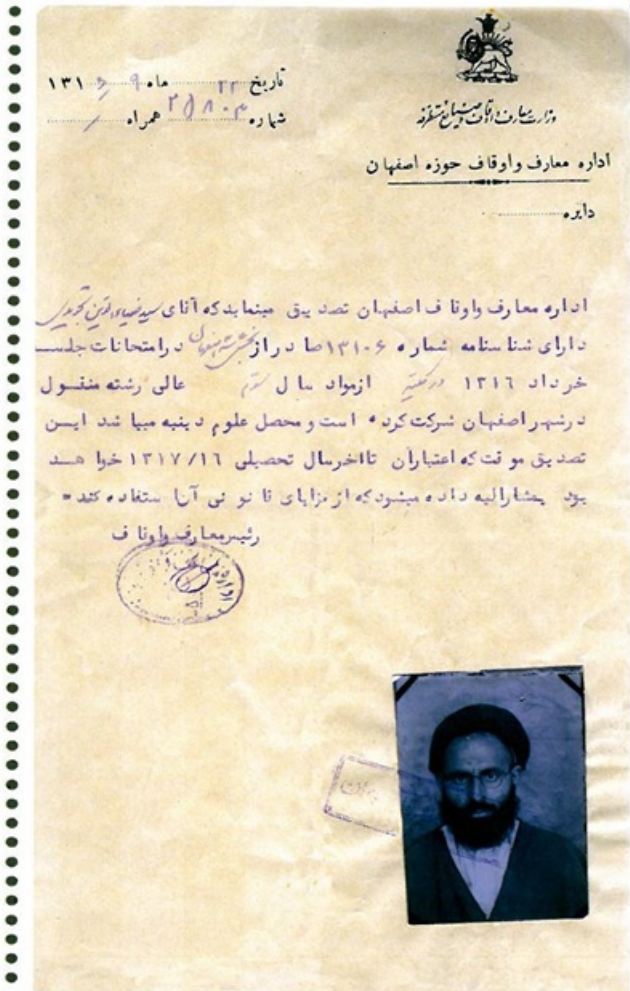 وزارت معارف و اوقاف و صنایع مستظرفه
اداره معارف و اوقاف حوزه اصفهان
دایره
تاریخ ۲۲ ماه ۹ ۱۳۱۶
شماره ۲۱۸۰۳ همراه
اداره معارف واوقاف اصفهان تصدیق مینماید که آقای سید ضیاءالدین تجویدی
دارای شناسنامه شماره ۱۳۱۰۶ صادر از بخش اصفهان در امتحانات جلسه
خرداد ۱۳۱۶ در کلیه ازمواد سال سوم عالی رشته منقول
درشهر اصفهان شرکت کرده است و محصل علوم دینیه میباشد این
تصدیق موقت که اعتبارآن تااخرسال تحصیلی ۱۳۱۷/۱۶ خواهد
بود بمشارالیه داده میشود که از مزایای قانونی آن استفاده کند
رئیس معارف واوقاف